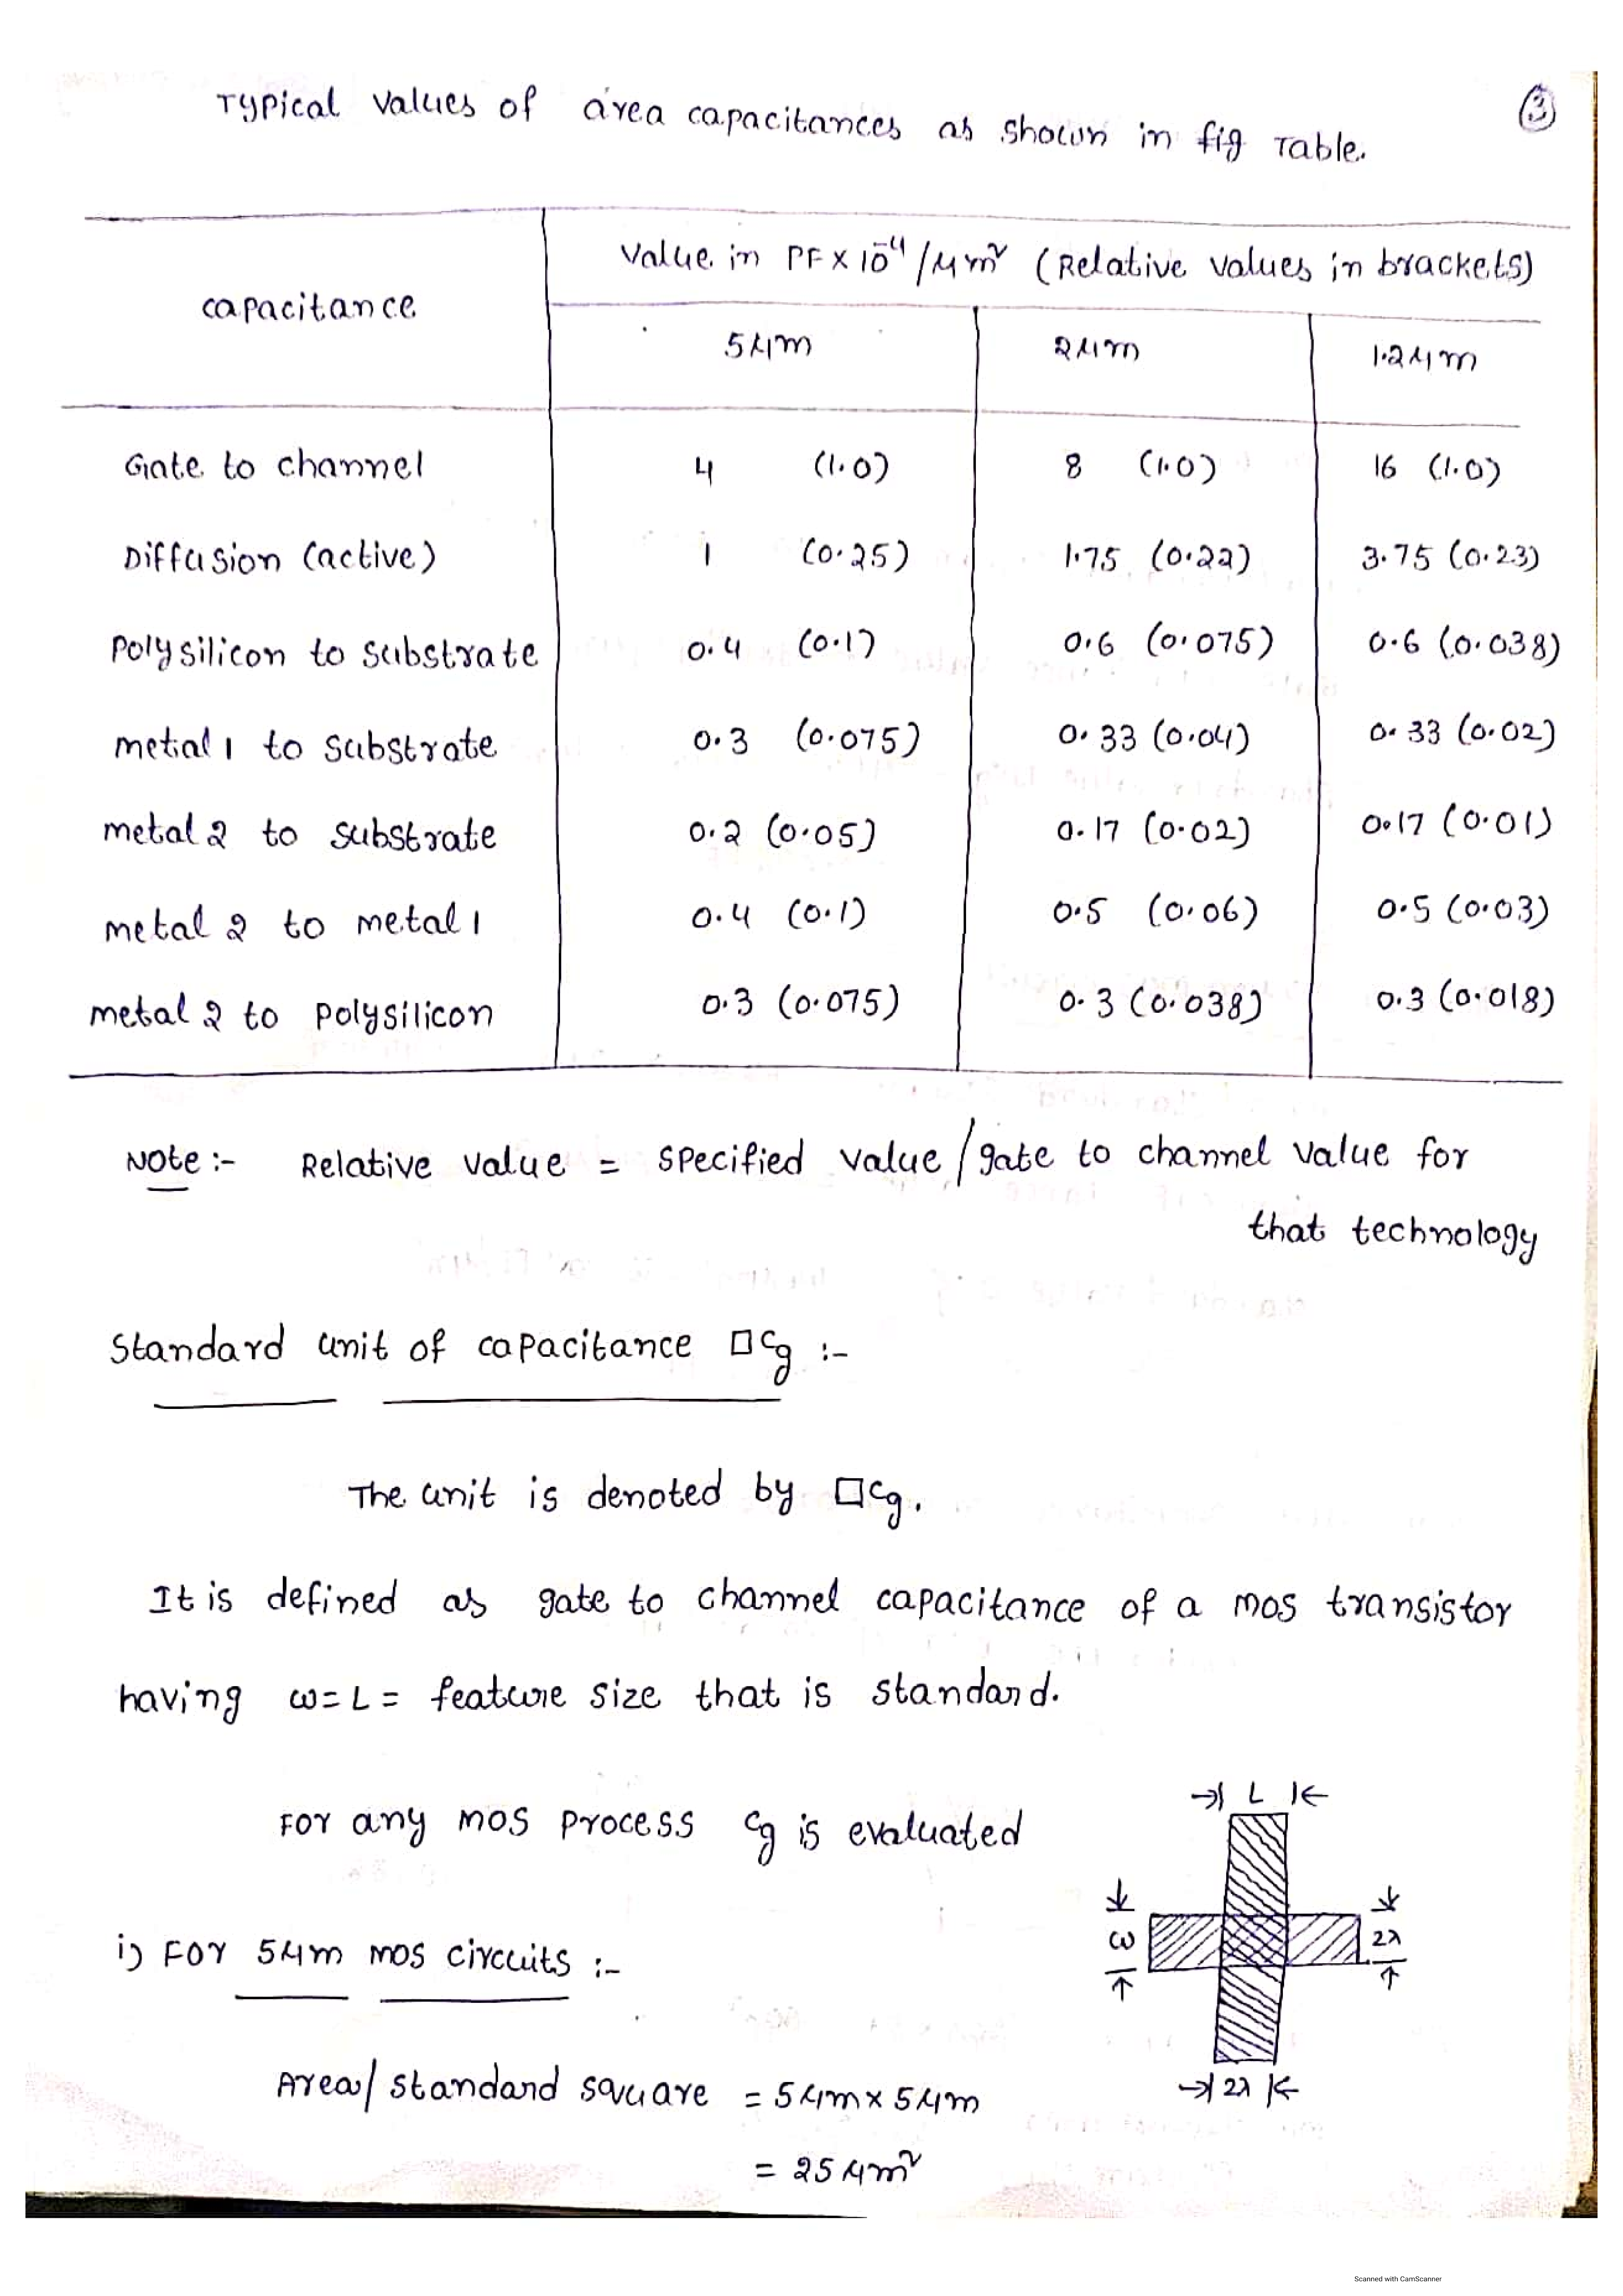 Typical values of area capacitances as shown in fig Table.
3
capacitance
Value in PF × 10⁻⁴ / μm² (Relative values in brackets)
5μm 2μm 1.2μm
Gate to channel 4 (1.0) 8 (1.0) 16 (1.0)
Diffusion (active) 1 (0.25) 1.75 (0.22) 3.75 (0.23)
Polysilicon to substrate 0.4 (0.1) 0.6 (0.075) 0.6 (0.038)
metal 1 to substrate 0.3 (0.075) 0.33 (0.04) 0.33 (0.02)
metal 2 to substrate 0.2 (0.05) 0.17 (0.02) 0.17 (0.01)
metal 2 to metal 1 0.4 (0.1) 0.5 (0.06) 0.5 (0.03)
metal 2 to polysilicon 0.3 (0.075) 0.3 (0.038) 0.3 (0.018)
Note :- Relative value = specified value / gate to channel value for
that technology
Standard unit of capacitance □Cg :-
The unit is denoted by □Cg.
It is defined as gate to channel capacitance of a mos transistor
having w = L = feature size that is standard.
For any mos process Cg is evaluated
L
w
2λ
2λ
i) For 5μm mos circuits :-
Area / standard square = 5μm × 5μm
= 25 μm²
Scanned with CamScanner